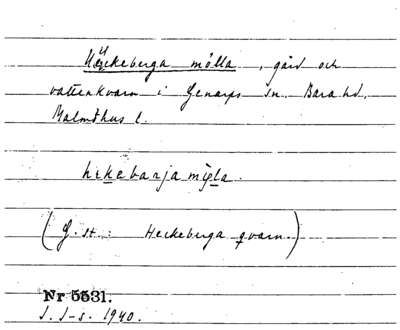 Häckeberga mölla, gård och
vattenkvarn i Genarps sn. Bara hd,
Malmöhus l.
hekabarja mø̜la.
(G. st.: Heckeberga qvarn.)
Nr 5531.
J. I-s. 1940.